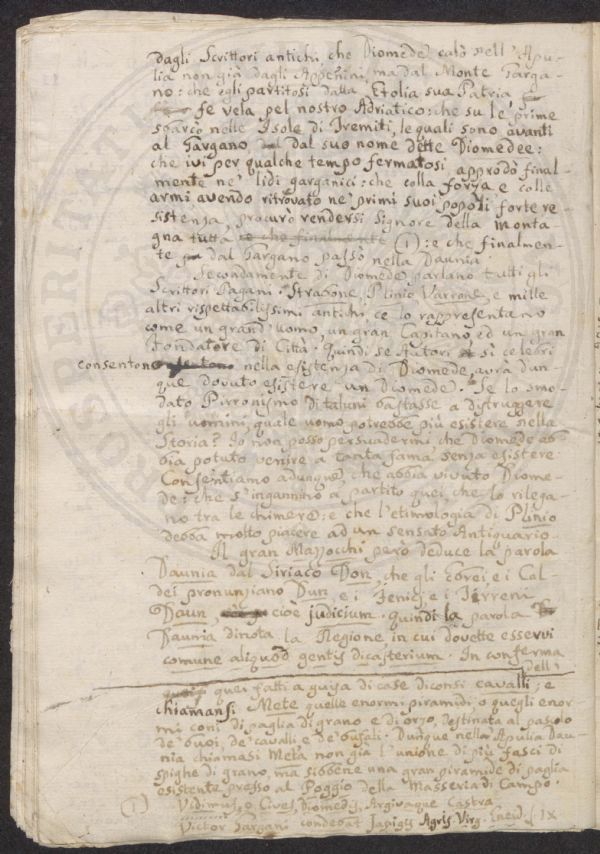 dagli Scrittori antichi, che Diomede calò nell'Apu-
lia non già dagli Appenini, ma dal Monte Garga-
no: che egli partitosi dalla Etolia sua Patria
fe vela pel nostro Adriatico: che su le prime
sbarcò nelle Isole di Tremiti, le quali sono avanti
al Gargano, dal suo nome dette Diomedee:
che ivi per qualche tempo fermatosi, approdò final-
mente ne' lidi garganici: che colla forza e colle
armi avendo ritrovato ne' primi suoi popoli forte re-
sistenza, procurò rendersi Signore della Monta-
gna tutta ce che finalmente (1): e che finalmen-
te dal Gargano passò nella Daunia
Secondamente di Diomede parlano tutti gli
Scrittori Pagani. Strabone, Plinio, Varrone, e mille
altri rispettabilissimi antichi, ce lo rappresentano
come un grand'uomo, un gran Capitano, ed un gran
Fondatore di Città. Quindi se Autori sì celebri
consentono nella esistenza di Diomede, avrà dun-
que dovuto esistere un Diomede. Se lo smo-
dato Pirronismo di taluni bastasse a distruggere
gli uomini, quale uomo potrebbe più esistere nella
Storia? Io non posso persuadermi che Diomede ab-
bia potuto venire a tanta fama senza esistere
Consentiamo adunque, che abbia vivuto Diome-
de: che s'ingannino a partito quei che lo rilega-
no tra le chimere: e che l'etimologia di Plinio
debba molto piacere ad un sensato Antiquario.
Il gran Mazzocchi però deduce la parola
Daunia dal Siriaco Don, che gli Ebrei, e i Cal-
dei pronunziano Dun, e i Fenicj e i Tirreni
Daun, cioè judicium. quindi la parola
Daunia dinota la Regione in cui dovette esservi
comune aliquod gentis dicasterium. In conferma
dell'
quei fatti a guisa di case diconsi cavalli; e
chiamansi Mete quelle enormi piramidi, o quegli enor
mi coni di paglia di grano e di orzo, destinata al pascolo
de' buoi, de' cavalli e de' bufali. Dunque nella Apulia Dau-
nia chiamasi Meta non già l'unione di più fasci di
spighe di grano, ma sibbene una gran piramide di paglia
esistente presso al Poggio della Masseria di Campo.
(1) Vidimus, o Cives, Diomedis, Argivaque Castra
Victor Gargani condebat Iapigis Agris. Virg. Eneid. l. IX
PROSPERITATI